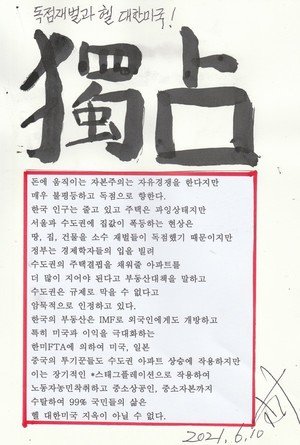 독점재벌과 헬 대한미국!
獨占
돈에 움직이는 자본주의는 자유경쟁을 한다지만
매우 불평등하고 독점으로 향한다.
한국 인구는 줄고 있고 주택은 과잉상태지만
서울과 수도권에 집값이 폭등하는 현상은
땅, 집, 건물을 소수 재벌들이 독점했기 때문이지만
정부는 경제학자들의 입을 빌려
수도권의 주택결핍을 채워줄 아파트를
더 많이 지어야 된다고 부동산대책을 말하고
수도권은 규제로 막을 수 없다고
암묵적으로 인정하고 있다.
한국의 부동산은 IMF로 외국인에게도 개방하고
특히 미국과 이익을 극대화하는
한미FTA에 의하여 미국, 일본
중국의 투기꾼들도 수도권 아파트 상승에 작용하지만
이는 장기적인 *스태그플레이션으로 작용하여
노동자농민착취하고 중소상공인, 중소자본까지
수탈하여 99% 국민들의 삶은
헬 대한미국 지옥이 아닐 수 없다.
2021. 6. 10